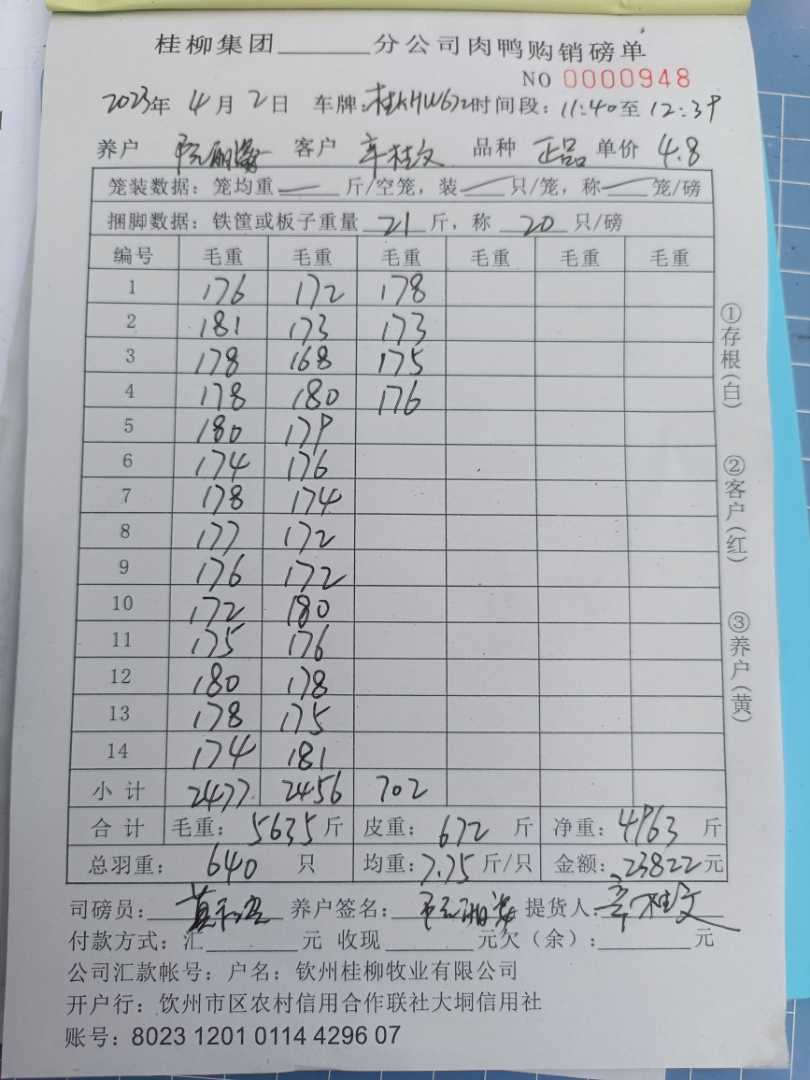 桂柳集团______分公司肉鸭购销磅单
NO 0000948
2023年 4月 2日 车牌:桂KHW672时间段:11:40至12:39
养户 客户 辛桂文 品种 正品 单价 4.8
笼装数据:笼均重 — 斤/空笼,装 — 只/笼,称 — 笼/磅
捆脚数据:铁筐或板子重量 21 斤,称 20 只/磅
编号 毛重 毛重 毛重 毛重 毛重 毛重
1 176 172 178
2 181 173 173
3 178 168 175
4 178 180 176
5 180 179
6 174 176
7 178 174
8 177 172
9 176 172
10 172 180
11 175 176
12 180 178
13 178 175
14 174 181
小计 2477 2456 702
合计 毛重: 5635 斤 皮重: 672 斤 净重: 4963 斤
总羽重: 640 只 均重: 7.75 斤/只 金额: 23822 元
司磅员: 养户签名: 提货人: 辛桂文
付款方式:汇______元 收现______元欠(余):______元
公司汇款帐号:户名:钦州桂柳牧业有限公司
开户行:饮州市区农村信用合作联社大垌信用社
账号:8023 1201 0114 4296 07
①存根(白)
②客户(红)
③养户(黄)